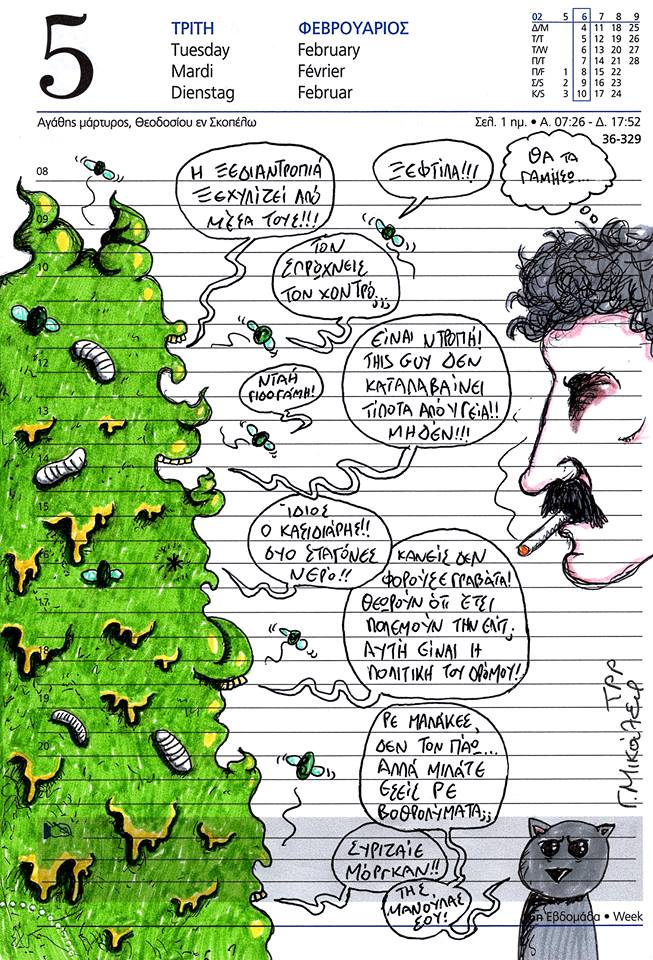 5
ΤΡΙΤΗ
Tuesday
Mardi
Dienstag
ΦΕΒΡΟΥΑΡΙΟΣ
February
Février
Februar
02 5 6 7 8 9
Δ/M 4 11 18 25
T/T 5 12 19 26
T/W 6 13 20 27
Π/T 7 14 21 28
Π/F 1 8 15 22
Σ/S 2 9 16 23
K/S 3 10 17 24
Αγάθης μάρτυρος, Θεοδοσίου εν Σκοπέλω
Σελ. 1 ημ. • Α. 07:26 - Δ. 17:52
36-329
08
09
10
12
13
14
15
17
18
19
20
Η ΞΕΔΙΑΝΤΡΟΠΙΑ
ΞΕΧΥΛΙΖΕΙ ΑΠΟ
ΜΕΣΑ ΤΟΥΣ!!!
ΞΕΦΤΙΛΑ!!!
ΘΑ ΤΑ
ΓΑΜΗΣΩ...
ΤΟΝ
ΣΠΡΩΧΝΕΙΣ
ΤΟΝ ΧΟΝΤΡΟ;;;
ΕΙΝΑΙ ΝΤΡΟΠΗ!
THIS GUY ΔΕΝ
ΚΑΤΑΛΑΒΑΙΝΕΙ
ΤΙΠΟΤΑ ΑΠΟ ΥΓΕΙΑ!!
ΜΗΔΕΝ!!!
ΝΤΑΗ
ΓΙΔΟΓΑΜΗ!
ΊΔΙΟΣ
Ο ΚΑΣΙΔΙΑΡΗΣ!!
ΔΥΟ ΣΤΑΓΟΝΕΣ
ΝΕΡΟ!!
ΚΑΝΕΙΣ ΔΕΝ
ΦΟΡΟΥΣΕ ΓΡΑΒΑΤΑ!
ΘΕΩΡΟΥΝ ΟΤΙ ΕΤΣΙ
ΠΟΛΕΜΟΥΝ ΤΗΝ ΕΛΙΤ;
ΑΥΤΗ ΕΙΝΑΙ Η
ΠΟΛΙΤΙΚΗ ΤΟΥ ΔΡΟΜΟΥ!
ΡΕ ΜΑΛΑΚΕΣ,
ΔΕΝ ΤΟΝ ΠΑΩ...
ΑΛΛΑ ΜΙΛΑΤΕ
ΕΣΕΙΣ ΡΕ
ΒΟΘΡΟΛΥΜΑΤΑ;;
ΣΥΡΙΖΑΙΕ
ΜΟΡΓΚΑΝ!!
ΤΗΣ
ΜΑΝΟΥΛΑΣ
ΣΟΥ!
Εβδομάδα • Week